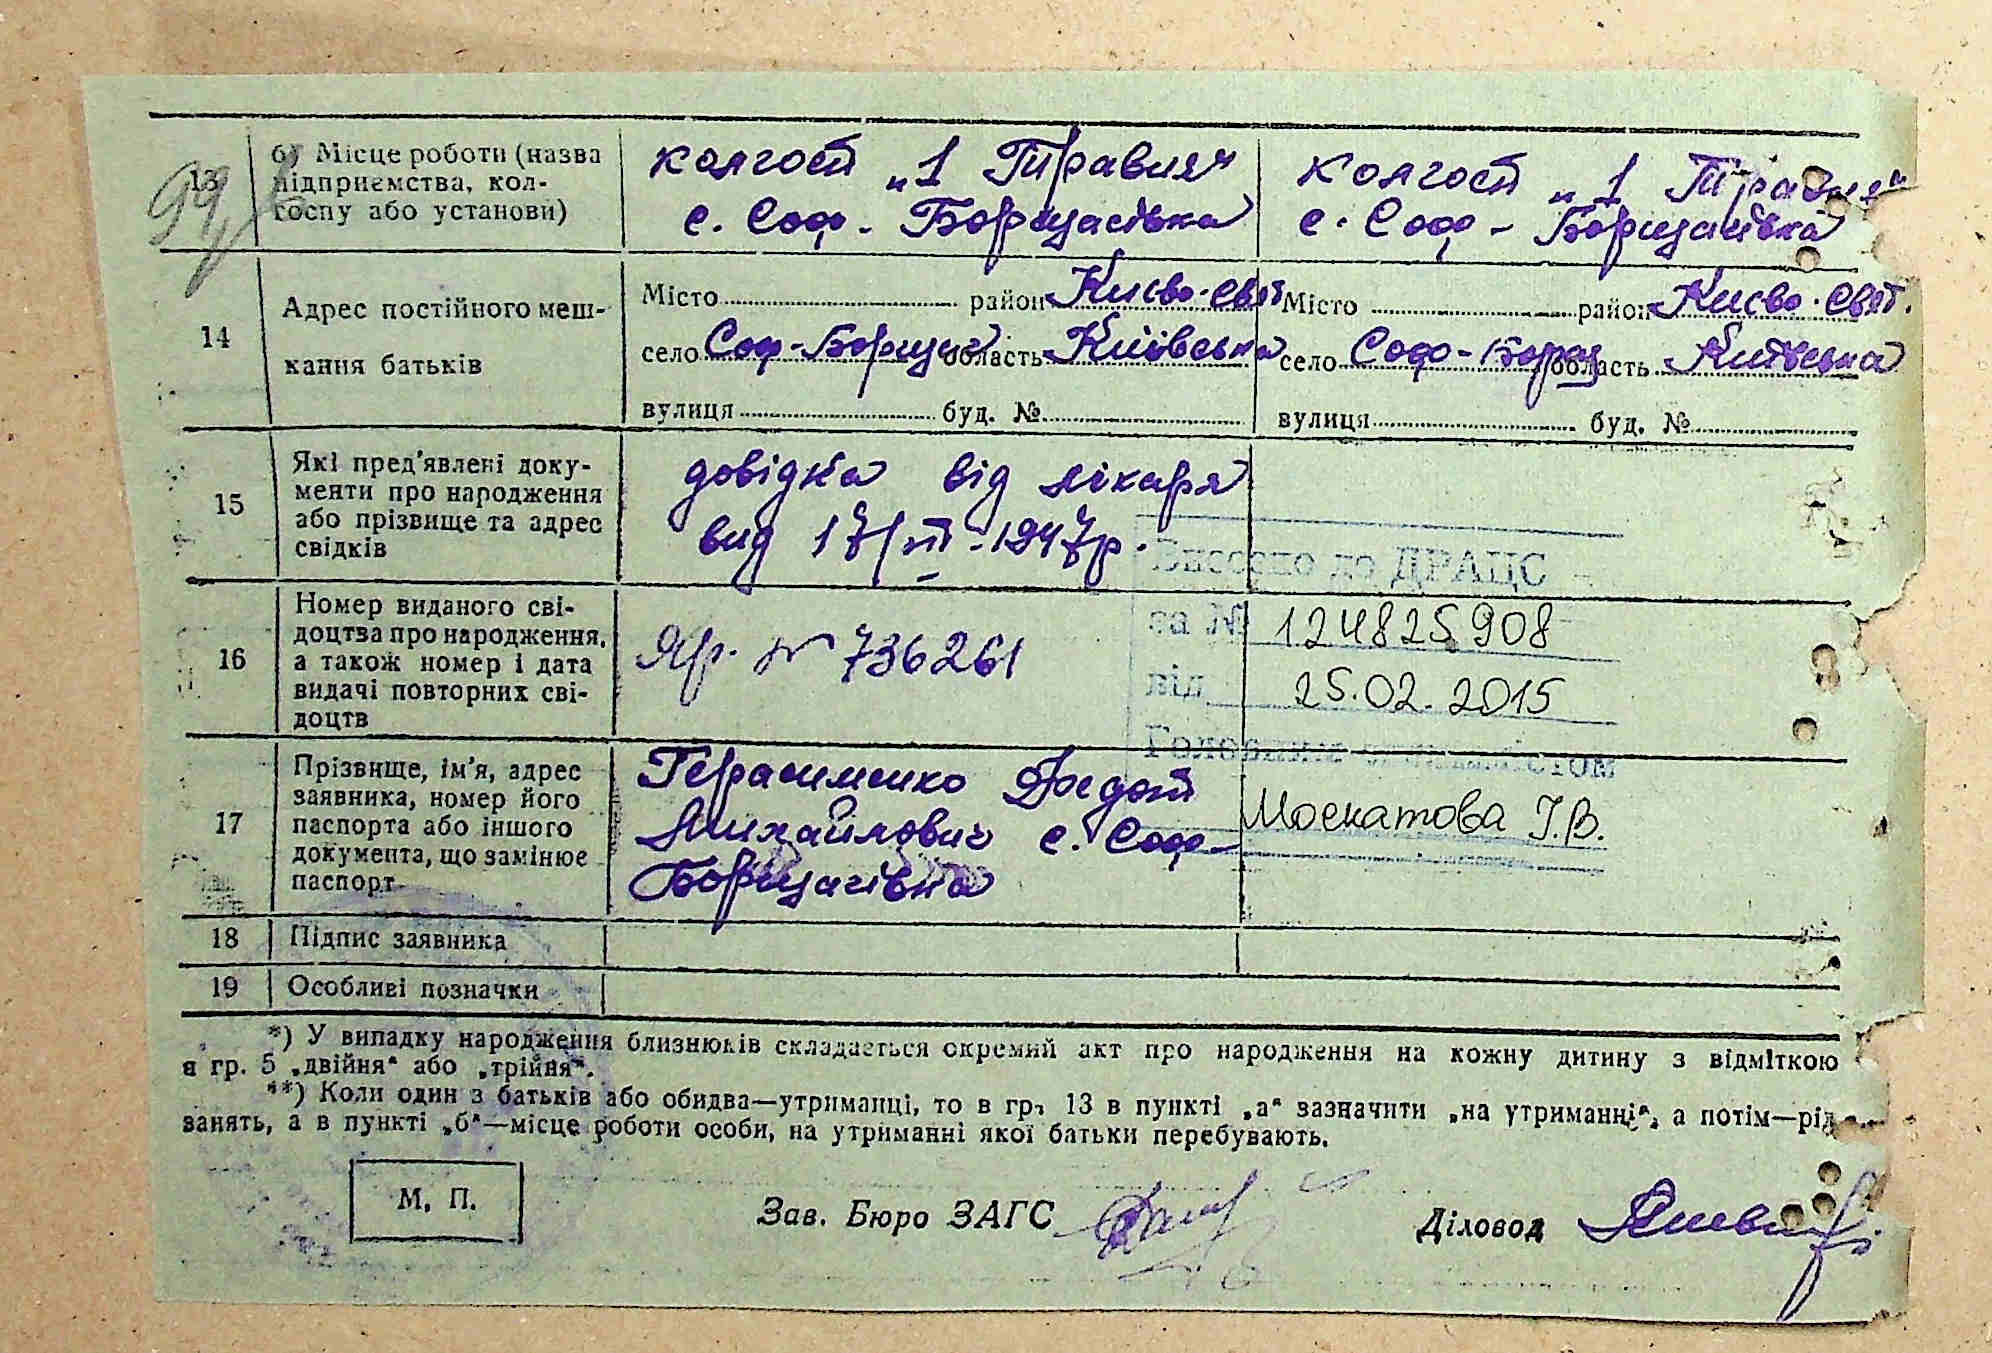 99
13 б) Місце роботи (назва підприємства, колгоспу або установи)
колгосп „1 Травня“
с. Соф - Борщагівка
колгосп „1 Травня“
с. Соф - Борщагівка
14 Адрес постійного мешкання батьків
Місто район Києво-Свят
село Соф-Борщаг область Київська
вулиця буд. №
Місто район Києво-Свят.
село Соф-Борщ область Київська
вулиця буд. №
15 Які пред'явлені документи про народження або прізвище та адрес свідків
довідка від лікаря
вид 17/III-1947р.
Внесено до ДРАЦС
за № 124825908
від 25.02.2015
Головним спеціалістом
Москатова І.В.
16 Номер виданого свідоцтва про народження, а також номер і дата видачі повторних свідоцтв
Яр. № 736261
17 Прізвище, ім'я, адрес заявника, номер його паспорта або іншого документа, що замінює паспорт
Герасименко Федот
Михайлович с. Соф-
Борщагівка
18 Підпис заявника
19 Особливі позначки
*) У випадку народження близнюків складається окремий акт про народження на кожну дитину з відміткою
в гр. 5 „двійня“ або „трійня“.
**) Коли один з батьків або обидва—утриманці, то в гр. 13 в пункті „а“ зазначити „на утриманні“, а потім—рід
занять, а в пункті „б“—місце роботи особи, на утриманні якої батьки перебувають.
М. П.
Зав. Бюро ЗАГС
Діловод